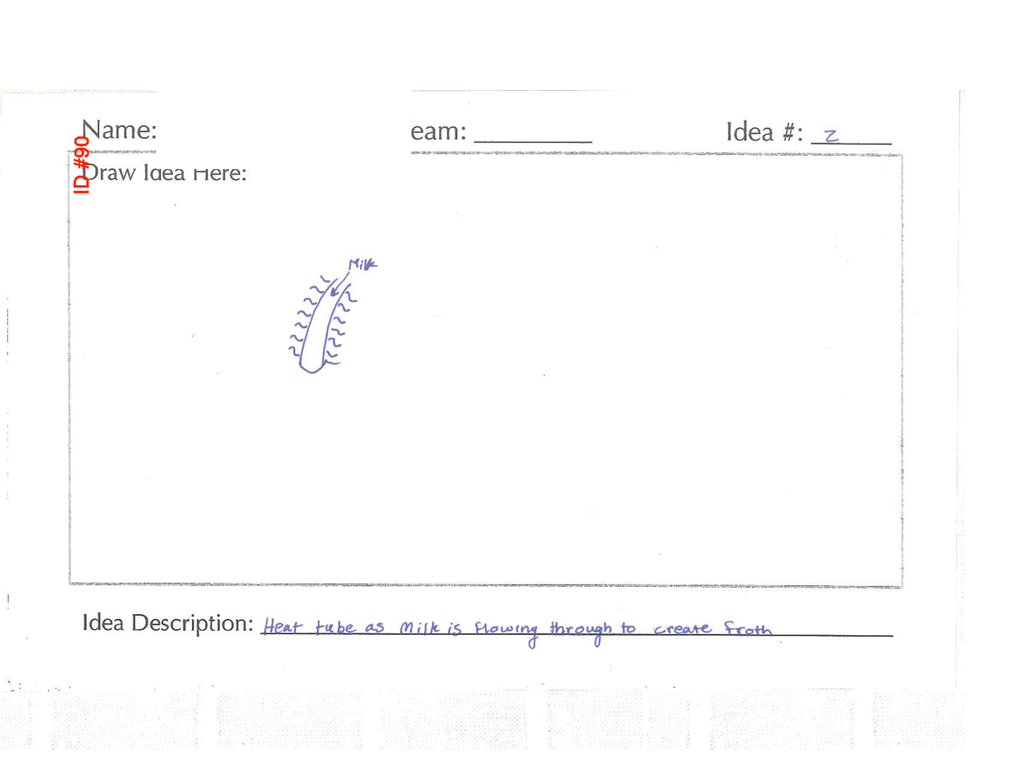 Name:
eam:
Idea #: 2
ID #90
Draw Idea Here:
Milk
Idea Description: Heat tube as Milk is flowing through to create froth